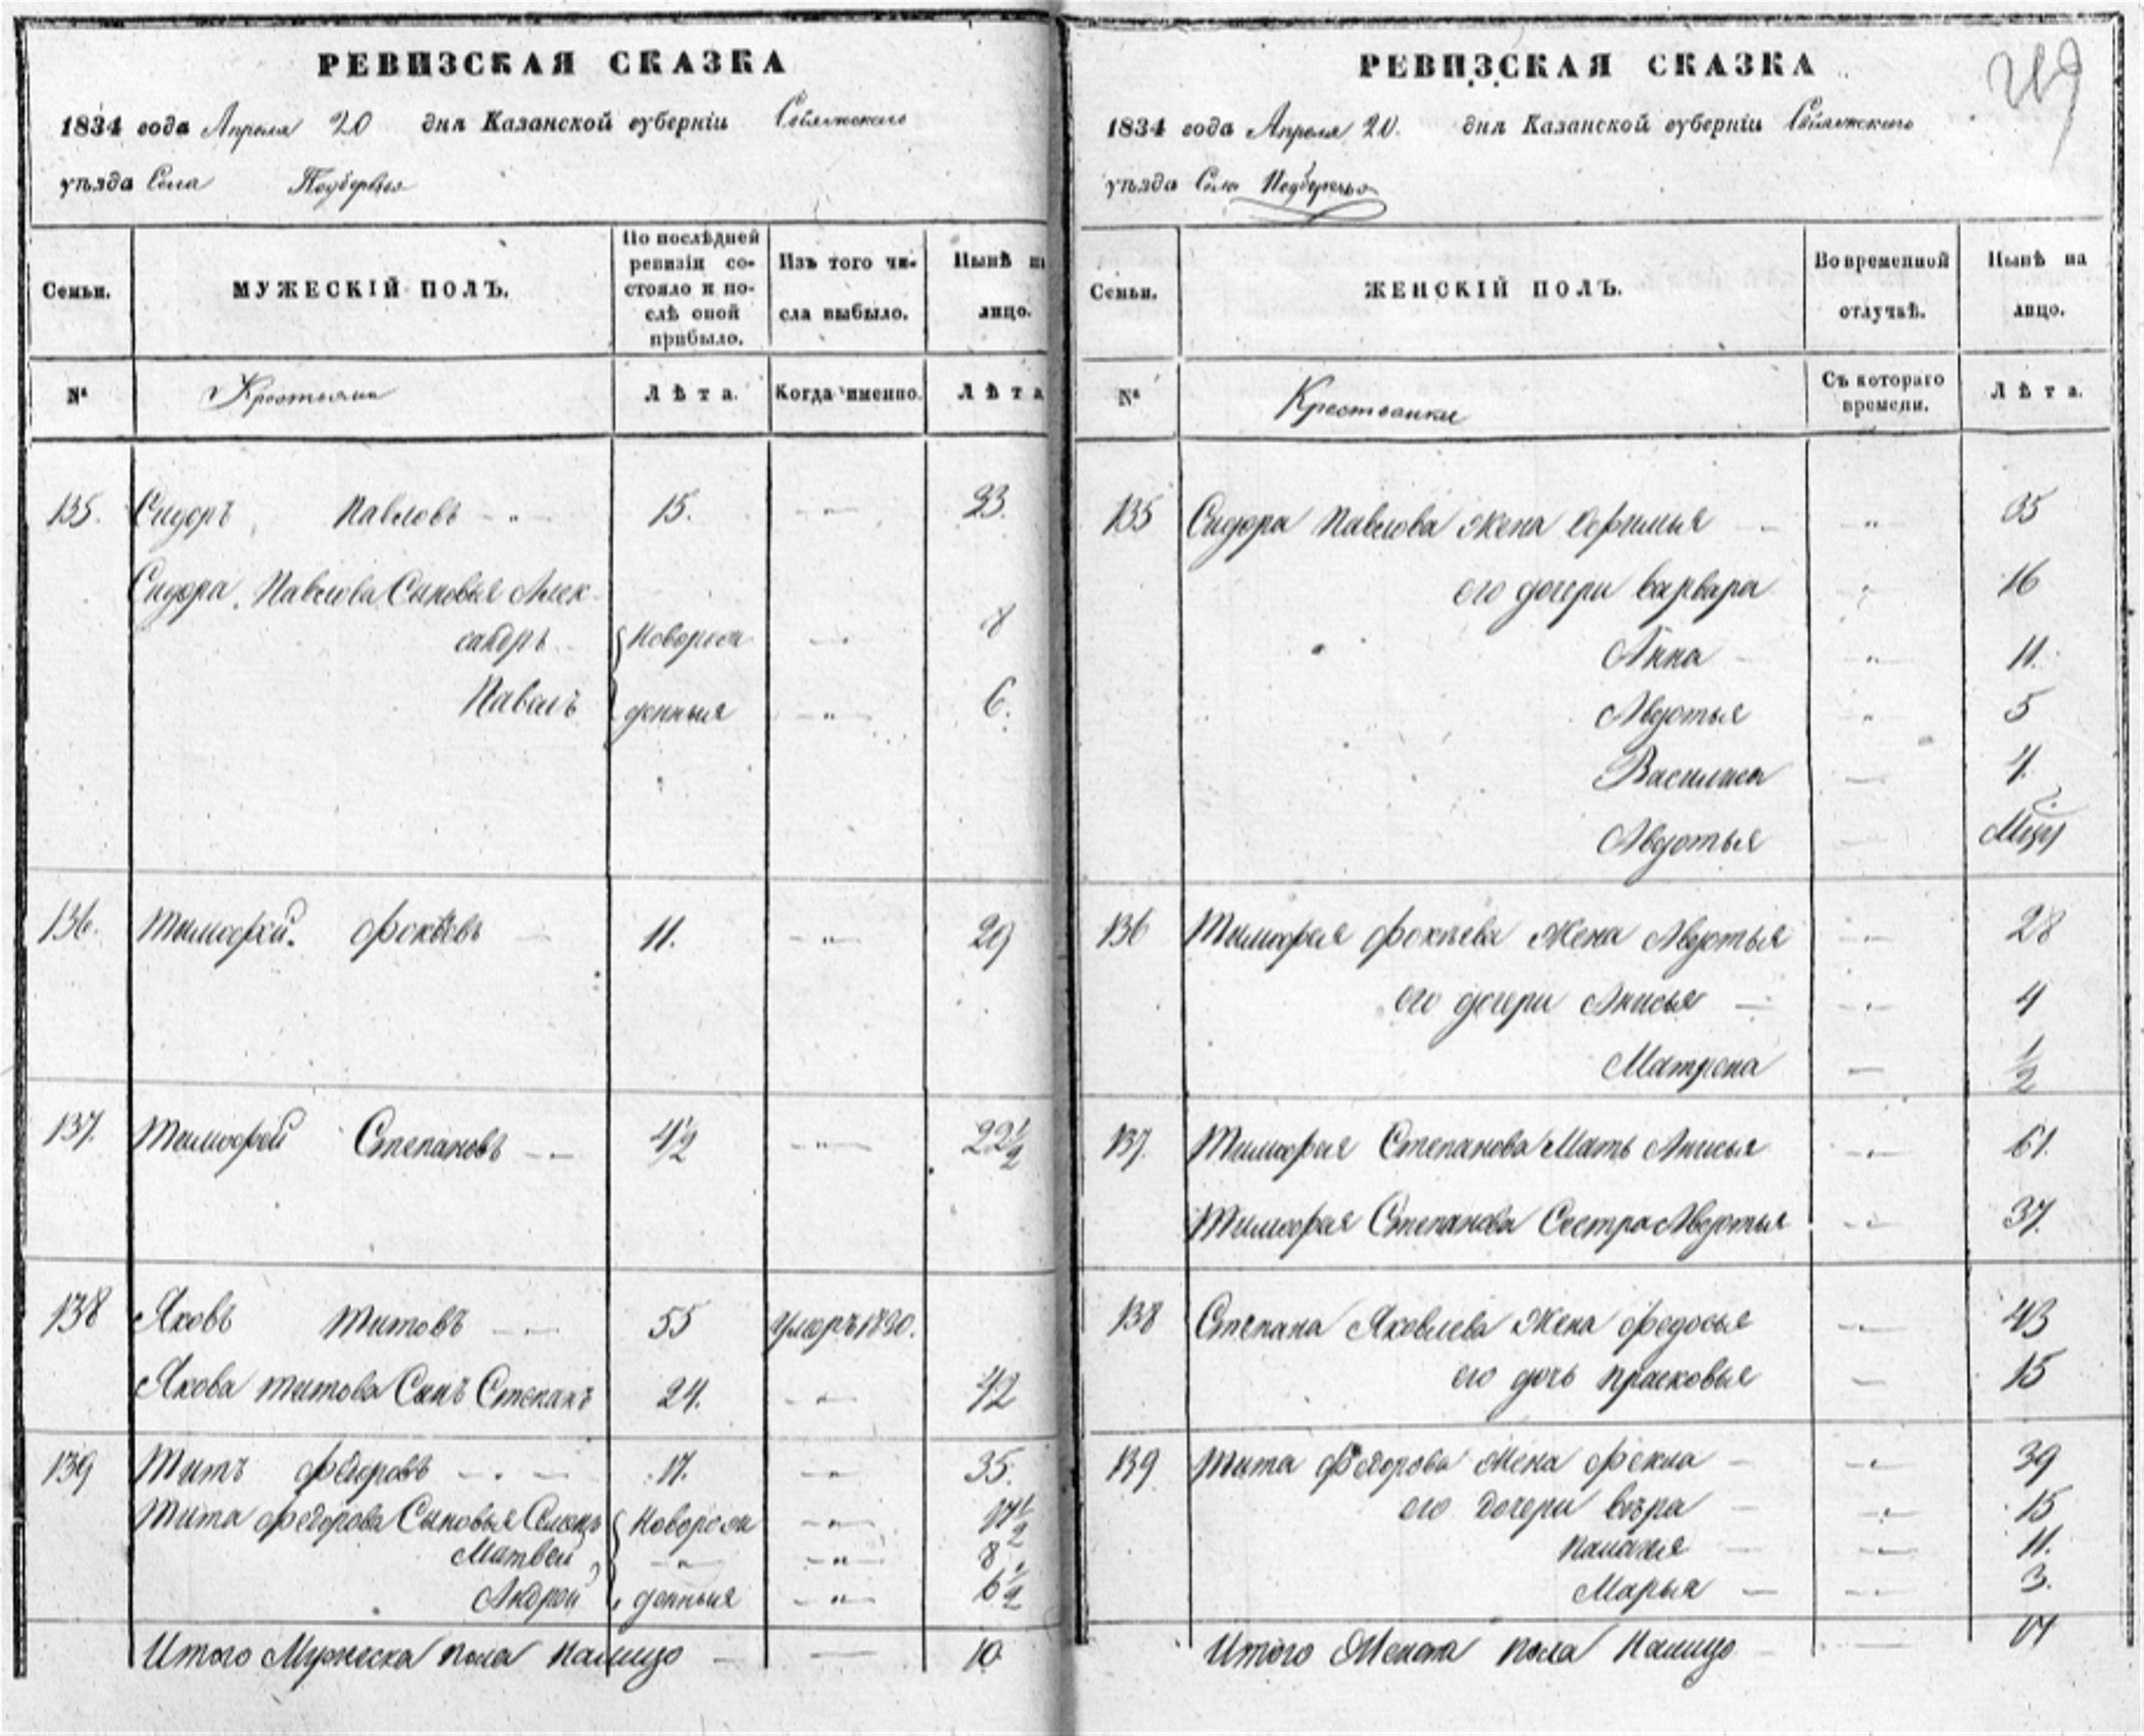 РЕВИЗСКАЯ СКАЗКА
1834 года Апреля 20 дня Казанской губерніи Свіяжскаго
уѣзда Села Подберезья
Семьи.
МУЖЕСКІЙ ПОЛЪ.
По послѣдней ревизіи со-
стояло и по-
слѣ оной
прибыло.
Изъ того чи-
сла выбыло.
Нынѣ на
лицо.
№
Крестьяне
Лѣта.
Когда именно.
Лѣта
135. Сидоръ Павловъ 15. 33.
Сидора Павлова Сыновья Алек-
сандръ Новорож 8
Павелъ денныя 6.
136. Тимофей Фокѣевъ 11. 29
137. Тимофей Степановъ 4 1/2 22 1/2
138 Яковъ Титовъ 55 Умеръ 1830.
Якова Титова Сынъ Степанъ 24. 42
139 Титъ Фёдоровъ 17. 35.
Тита Фёдорова Сыновья Семенъ Новорож 17 1/2
Матвей 8
Андрей денныя 6 1/2
Итого Мужеска пола налицо 10
РЕВИЗСКАЯ СКАЗКА
1834 года Апреля 20. дня Казанской губерніи Свіяжскаго
уѣзда Села Подберезья
Семьи.
ЖЕНСКІЙ ПОЛЪ.
Во временной
отлучкѣ.
Нынѣ на
лицо.
№
Крестьянки
Съ котораго
времени.
Лѣта.
135 Сидора Павлова Жена Ефимья 35
его дочери Варвара 16
Анна 11.
Авдотья 5
Василиса 4.
Авдотья
136 Тимофея Фокѣева Жена Авдотья 28
его дочери Анисья 4
Матрена 1/2
137 Тимофея Степанова Мать Анисья 61.
Тимофея Степанова Сестра Авдотья 37.
138 Степана Яковлева Жена Федосья 43
его дочь Прасковья 15
139 Тита Фёдорова Жена Фекла 39
его дочери Вѣра 15
Палагея 11.
Марья 3.
Итого Женска пола Налицо 17